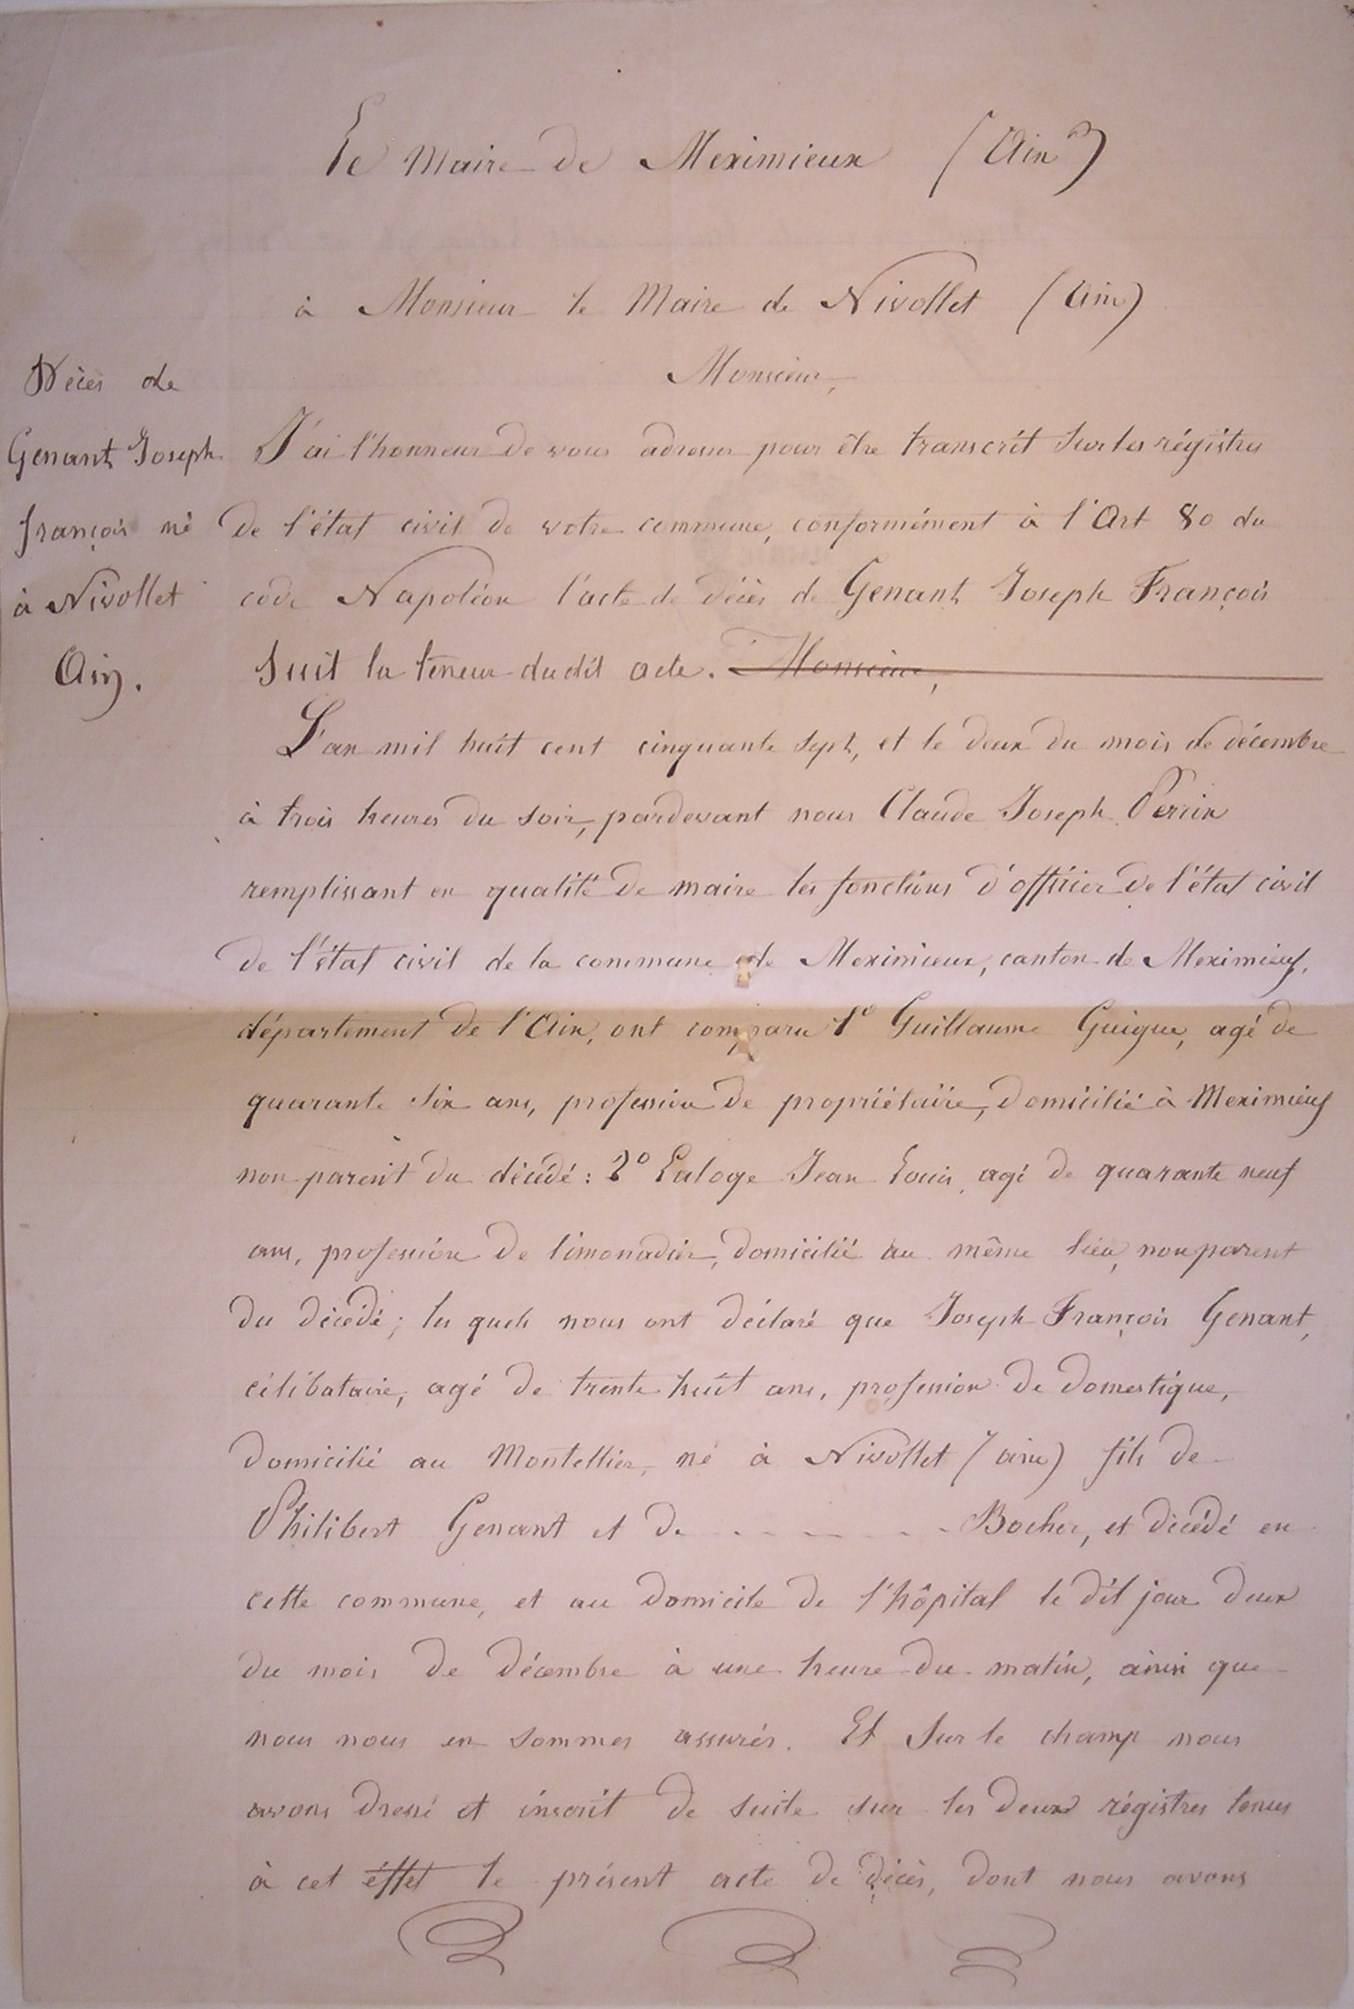 Le Maire de Meximieux (Ain)
à Monsieur le Maire de Nivollet (Ain)
Monsieur,
Décès de
Genant Joseph
françois né
à Nivollet
Ain.
J'ai l'honneur de vous adresser pour être transcrit sur les régistres
de l'état civil de votre commune, conformément à l'Art 80 du
code Napoléon l'acte de décès de Genant Joseph François
suit la teneur dudit acte. Monsieur,
L'an mil huit cent cinquante sept, et le deux du mois de décembre
à trois heures du soir, pardevant nous Claude Joseph Perrin
remplissant en qualité de maire les fonctions d'officier de l'état civil
de l'état civil de la commune de Meximieux, canton de Meximieux,
département de l'Ain, ont comparu 1º Guillaume Guigue, agé de
quarante six ans, profession de propriétaire, domicilié à Meximieux
non parent du décédé : 2º Laloge Jean Louis, agé de quarante neuf
ans, profession de limonadier, domicilié au même lieu, non parent
du décédé ; les quels nous ont déclaré que Joseph François Genant,
célibataire, agé de trente huit ans, profession de domestique,
domicilié au Montellier, né à Nivollet (ain) fils de
Philibert Genant et de - - - - - - Bocher, et décédé en
cette commune, et au domicile de l'hôpital le dit jour deux
du mois de décembre à une heure du matin, ainsi que
nous nous en sommes assurés. Et sur le champ nous
avons dressé et inscrit de suite sur les deux régistres tenus
à cet éffet le présent acte de décès, dont nous avons